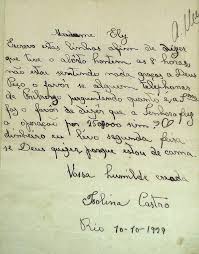 Madame Ely
Escrevo estas linhas afim de dizer
que tive o aborto hontem as 8 horas
não estou sentindo nada graças a Deus
Peço o favor se alguem telephonar
de Friburgo perguntando quanto é a
faz o favor de dizer que a Senhora fez
a operação por 250$000 sem
dinheiro eu levo segunda feira
se Deus quizer porque estou de cama
Vossa humilde creada
Isolina Castro
Rio 10-10-1929